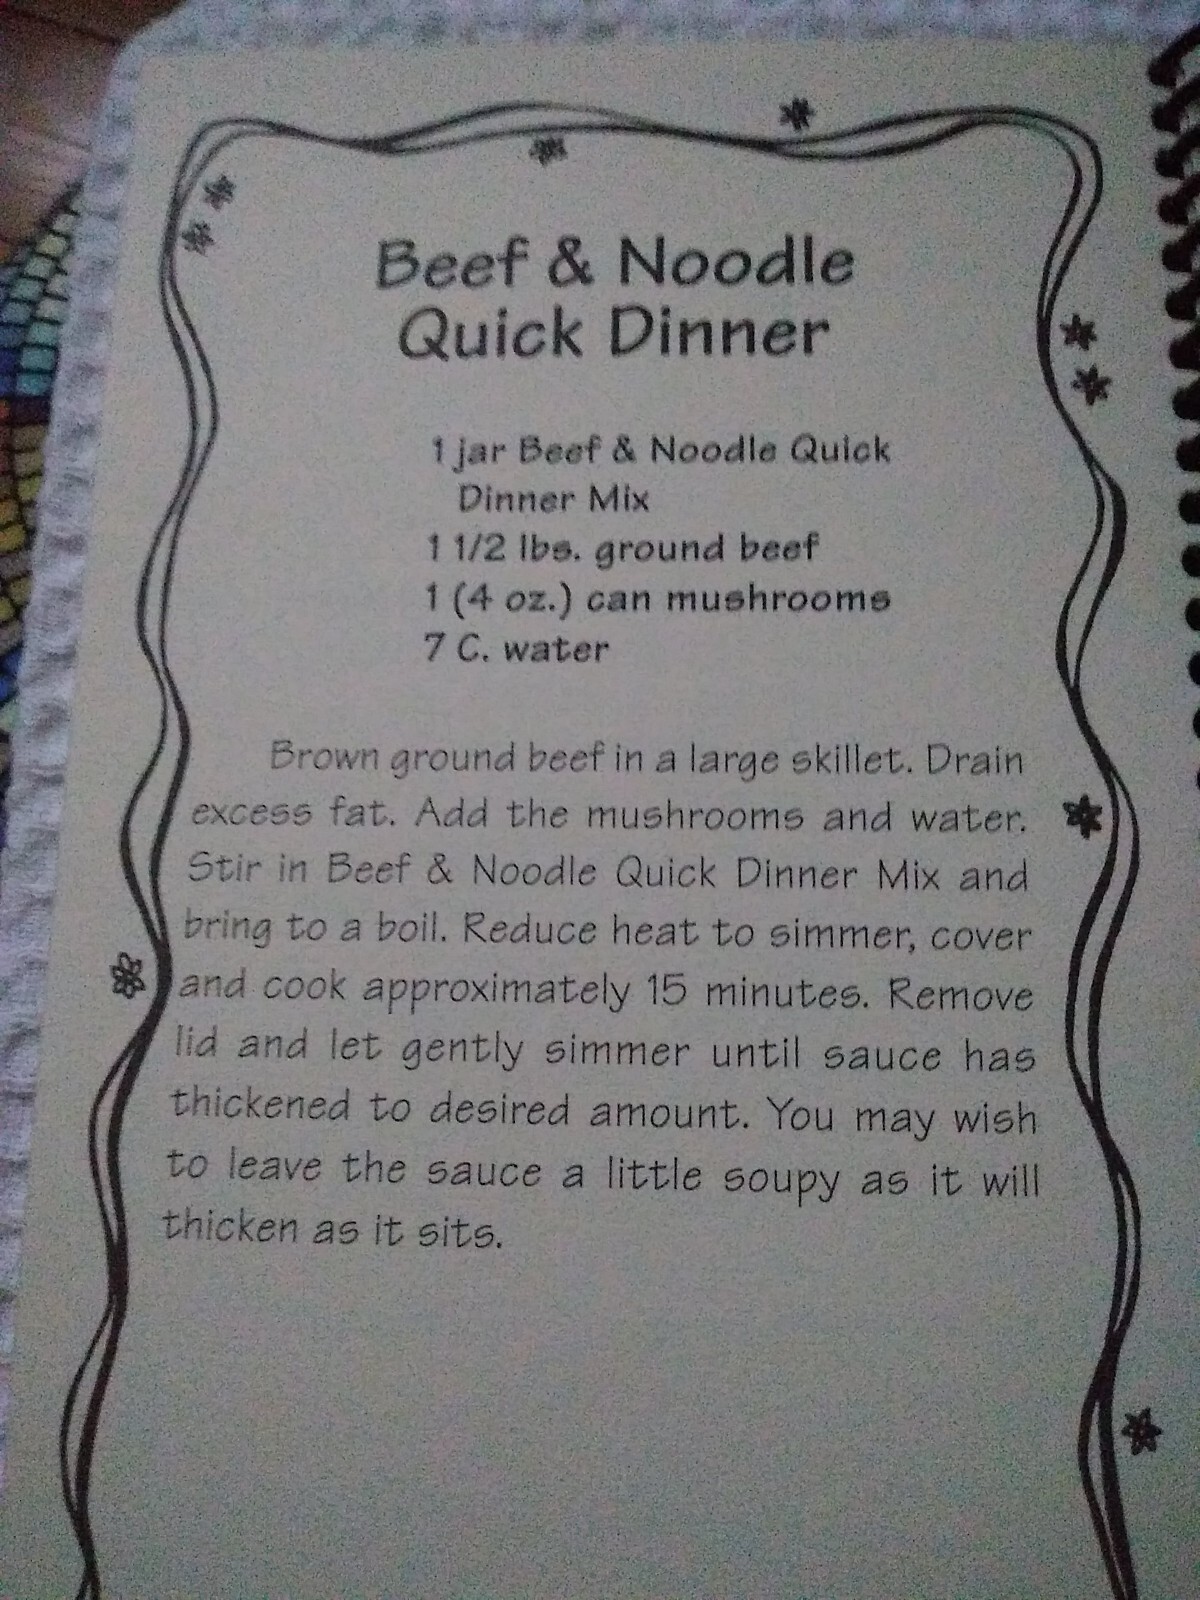 Beef & Noodle
Quick Dinner
1 jar Beef & Noodle Quick
Dinner Mix
1 1/2 lbs. ground beef
1 (4 oz.) can mushrooms
7 C. water
Brown ground beef in a large skillet. Drain
excess fat. Add the mushrooms and water.
Stir in Beef & Noodle Quick Dinner Mix and
bring to a boil. Reduce heat to simmer, cover
and cook approximately 15 minutes. Remove
lid and let gently simmer until sauce has
thickened to desired amount. You may wish
to leave the sauce a little soupy as it will
thicken as it sits.